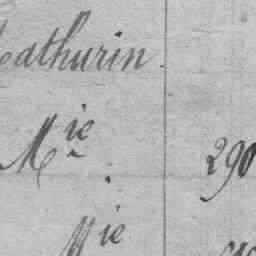 Mathurin.
Mie 290
Mie